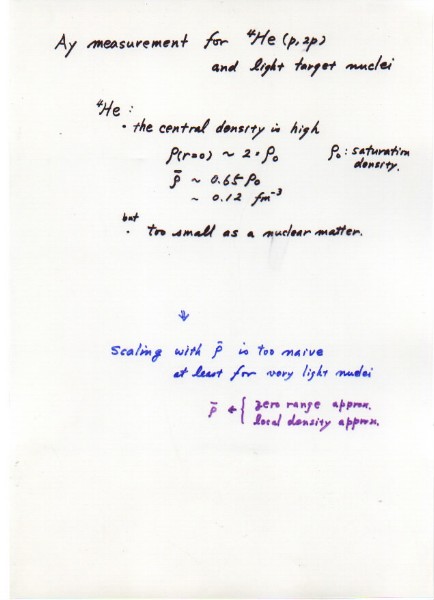 Ay measurement for ⁴He(p,2p)
and light target nuclei
⁴He :
· the central density is high
ρ(r=0) ~ 2·ρ₀ ρ₀ : saturation
density.
ρ̄ ~ 0.65 ρ₀
~ 0.12 fm⁻³
but
· too small as a nuclear matter.
⇓
Scaling with ρ̄ is too naive
at least for very light nuclei
ρ̄ ← { zero range approx.
local density approx.